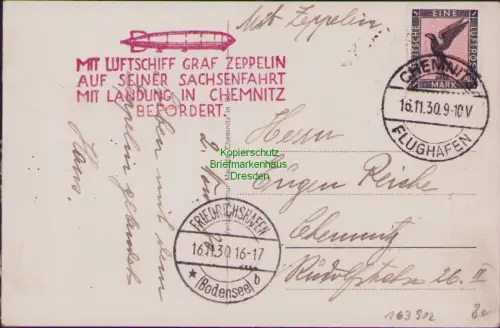 Mit Zeppelin
MIT LUFTSCHIFF GRAF ZEPPELIN
AUF SEINER SACHSENFAHRT
MIT LANDUNG IN CHEMNITZ
BEFÖRDERT.
EINE
MARK
CHEMNITZ
16.11.30.9-10V
FLUGHAFEN
Eben mit dem
Zeppelin gelandet
Hans.
Kopierschutz
Briefmarkenhaus
Dresden
Herrn
Eugen Reiche
Chemnitz
Rudolfstrasse 26. II
FRIEDRICHSHAFEN
16.11.30 16-17
* (Bodensee) b
163902